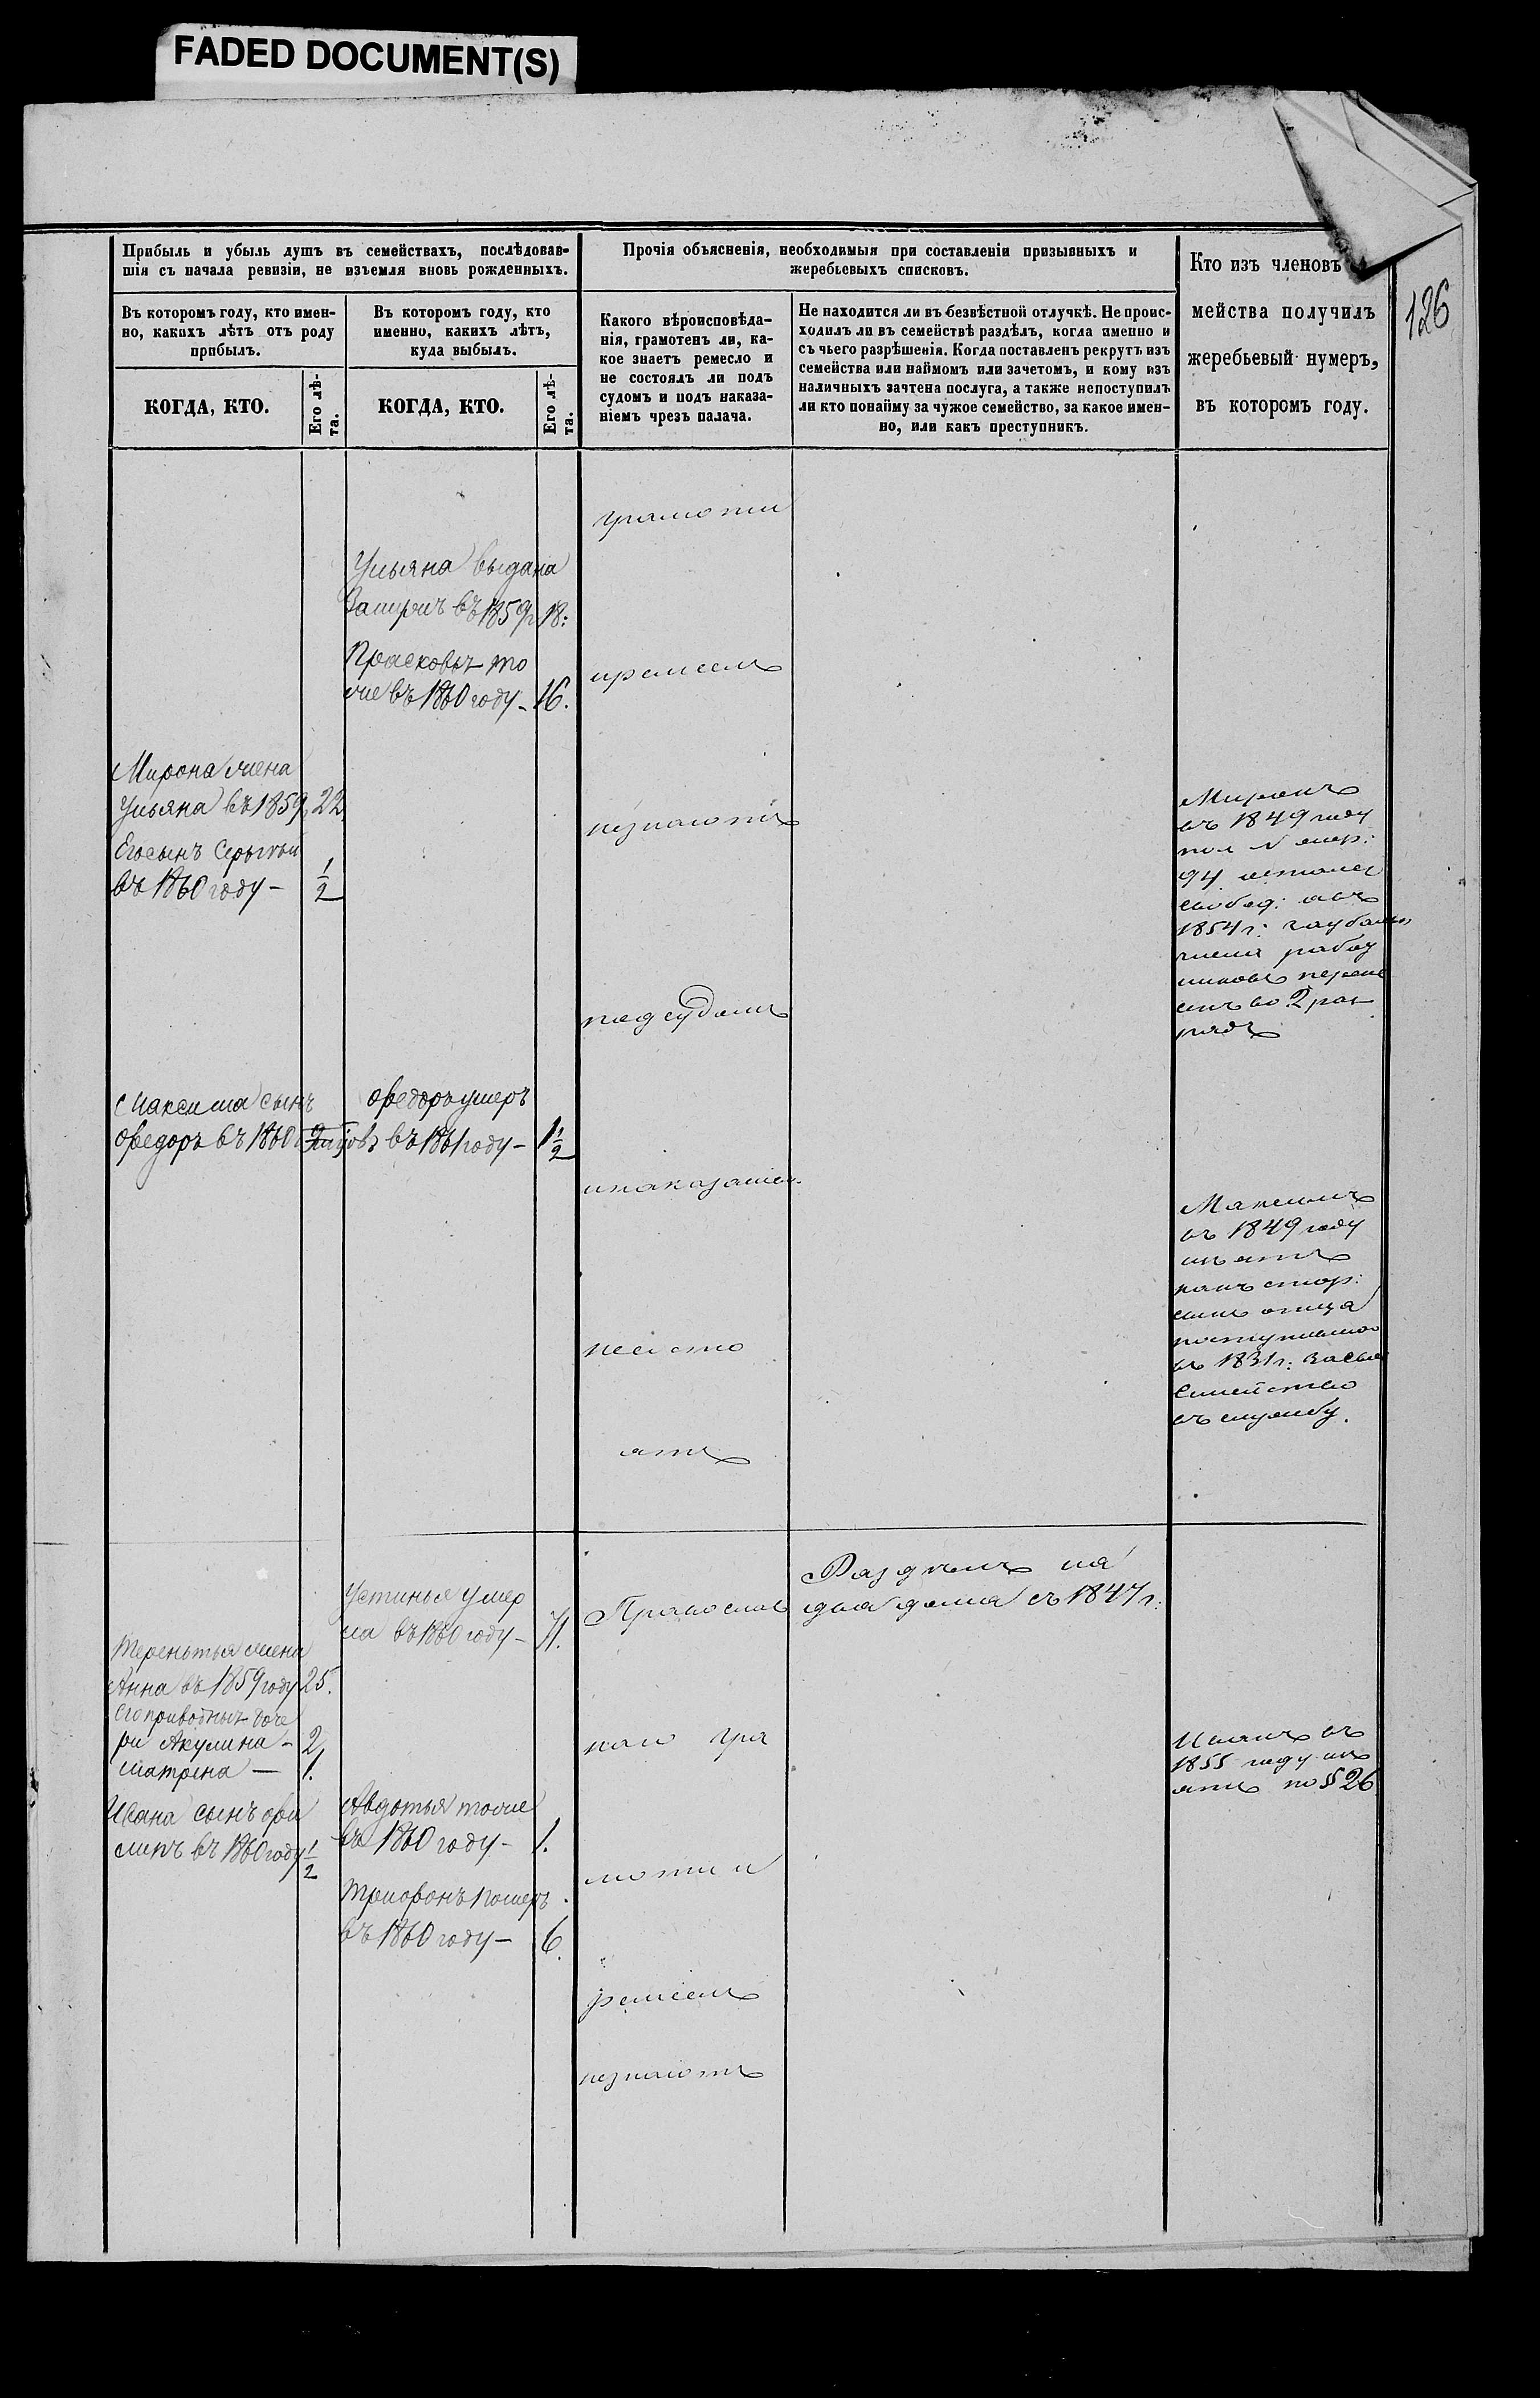 FADED DOCUMENT(S)
126
Прибыль и убыль душъ въ семействахъ, послѣдовав-
шія съ начала ревизіи, не изъемля вновь рожденныхъ.
Прочія объясненія, необходимыя при составленіи призывныхъ и
жеребьевыхъ списковъ.
Кто изъ членовъ
мейства получилъ
жеребьевый нумеръ,
въ которомъ году.
Въ которомъ году, кто имен-
но, какихъ лѣтъ отъ роду
прибылъ.
Въ которомъ году, кто
именно, какихъ лѣтъ,
куда выбылъ.
Какого вѣроисповѣда-
нія, грамотенъ ли, ка-
кое знаетъ ремесло и
не состоялъ ли подъ
судомъ и подъ наказа-
ніемъ чрезъ палача.
Не находится ли въ безвѣстной отлучкѣ. Не проис-
ходилъ ли въ семействѣ раздѣлъ, когда именно и
съ чьего разрѣшенія. Когда поставленъ рекрутъ изъ
семейства или наймомъ или зачетомъ, и кому изъ
наличныхъ зачтена послуга, а также непоступилъ
ли кто понайму за чужое семейство, за какое имен-
но, или какъ преступникъ.
КОГДА, КТО.
Его лѣ-
та.
КОГДА, КТО.
Его лѣ-
та.
грамоти
Ульяна выдана
Замужъ въ 1859г 18:
Прасковья то
же въ 1860 году - 16.
иремеслъ
Мирона жена
Ульяна въ 1859 22
Егосынъ
въ 1860 году - 1/2
незнаютъ
Миронъ
въ 1849 году
94 остался
свобод:
1854 г:
во 2 раз
рядъ
подсудомъ
Максима сынъ
Ѳедоръ въ 1860
Ѳедоръ умеръ
въ 1861 году - 1 1/2
инаказаніем
Максимъ
въ 1849 году
изъятъ
сынъ отца
поступившаго
въ 1831 г: за свое
Семейство
въ службу.
несосто
ятъ
Устинья умер
ла въ 1860 году - 71.
Православ
Раздѣлъ на
два дома съ 1847 г:
Терентья жена
Анна въ 1859 году 25.
Его приводныя доче
ри Акулина - 2
Матрена — 1.
Ивана сынъ Фи
липъ въ 1860 году 1/2
Авдотья тоже
въ 1860 году - 1.
Трифонъ померъ
въ 1860 году - 6.
наго гра
моти и
ремеслъ
незнаютъ
Иванъ въ
1855 году изъ
ятъ по § 26